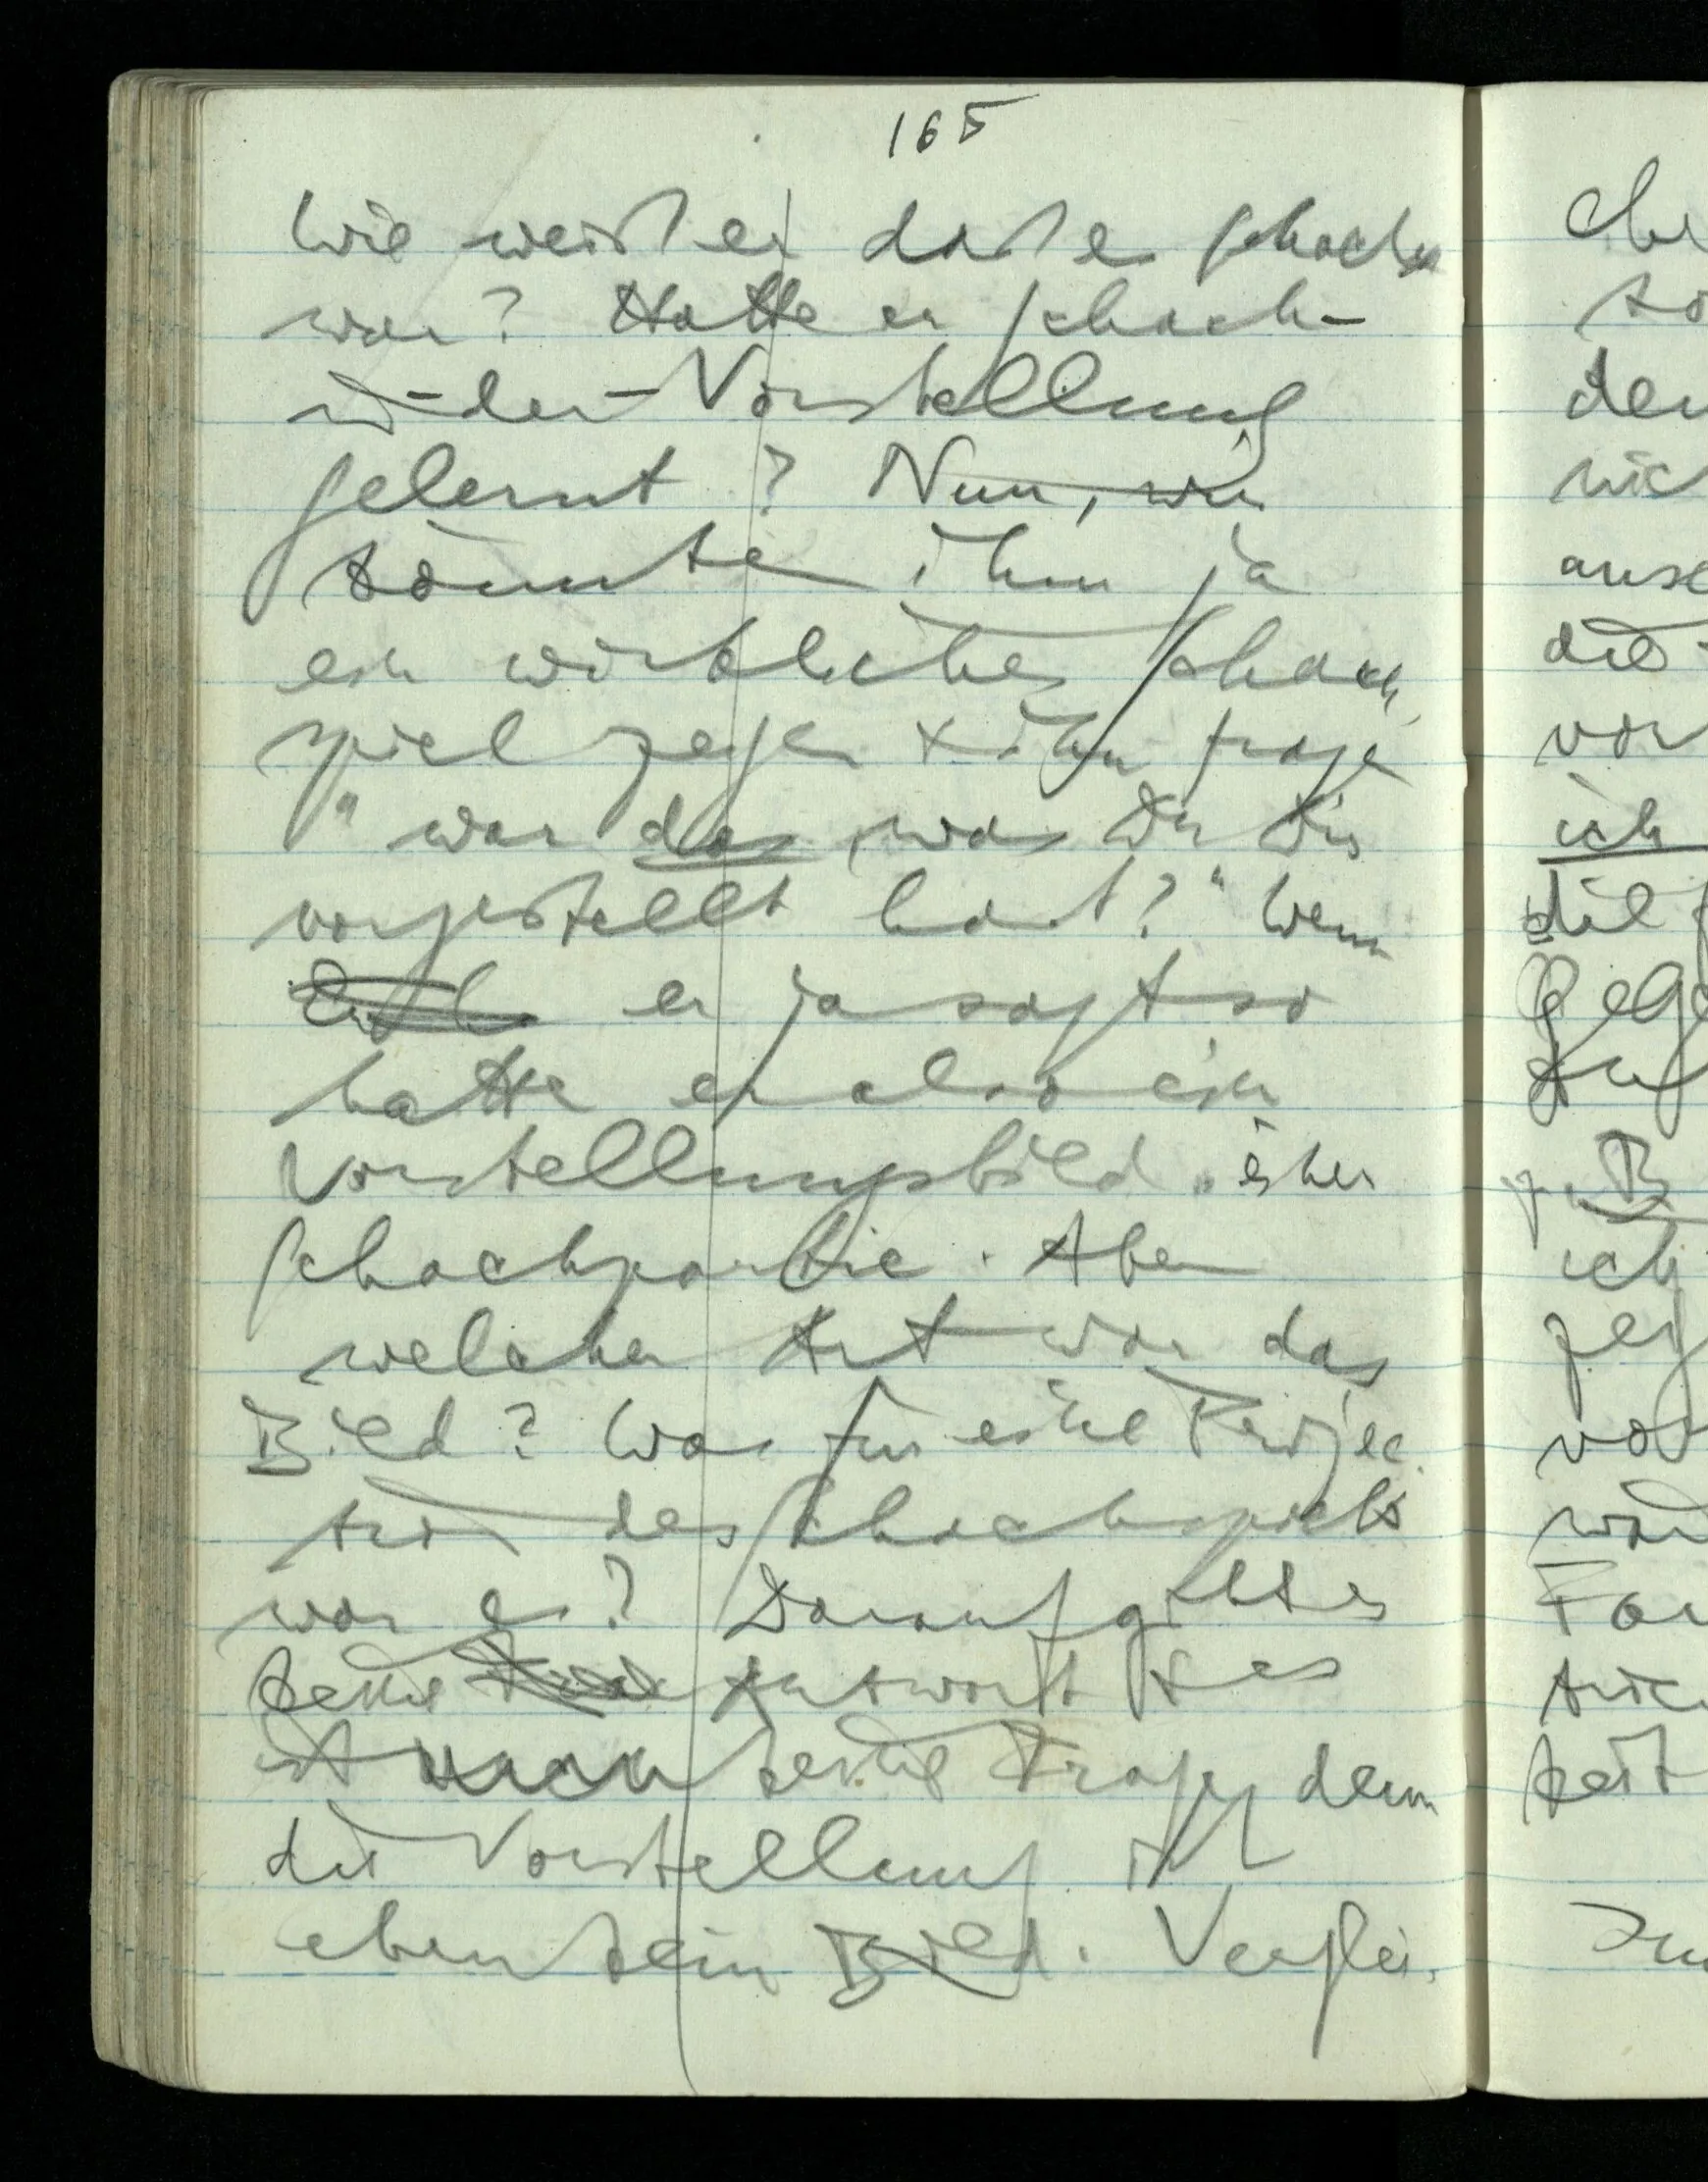 165
Wie weiß er daß es Schach
war? Hatte er Schach-
in-der-Vorstellung
gelernt? Nun, wir
könnten ihm ja
ein wirkliches Schach
spiel zeigen & ihn fragen
"war das, was Du Dir
vorgestellt hast?" Wenn
er ja sagt so
hatte er also ein
Vorstellungsbild einer
Schachpartie. Aber
welcher Art war das
Bild? Was für eine Projec
tion des Schachspiels
war es? Darauf gibt es
keine Antwort & es
ist auch keine Frage denn
die Vorstellung ist
eben kein Bild. Verglei-
die
vor
ich
die
ich